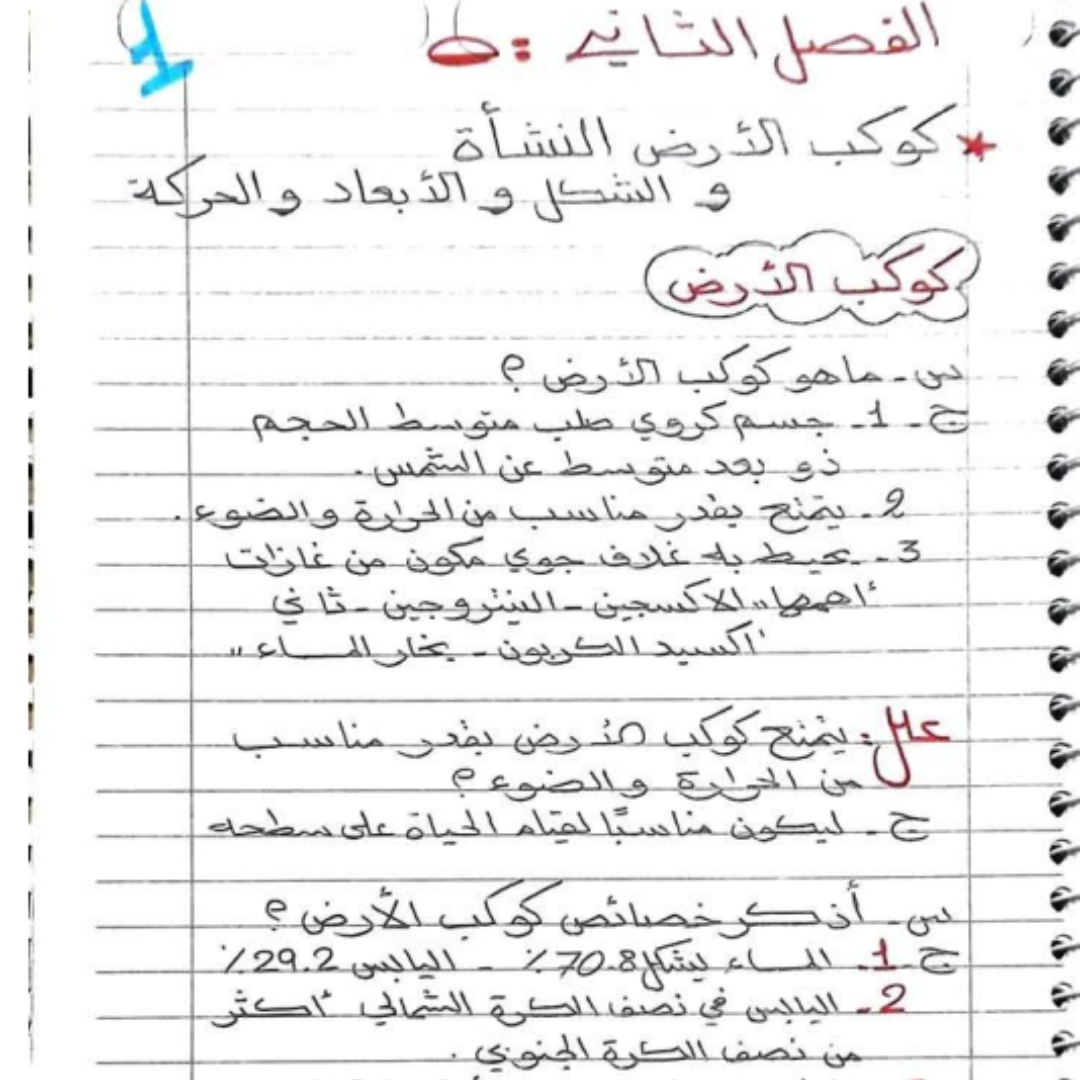 1
الفصل الثاني :ط
* كوكب الأرض النشأة
و الشكل و الأبعاد والحركة
كوكب الأرض
س - ماهو كوكب الأرض ؟
ج - 1 - جسم كروي صلب متوسط الحجم
ذو بعد متوسط عن الشمس .
2 - يتمتع بقدر مناسب من الحرارة والضوء .
3 - يحيط به غلاف جوي مكون من غازات
أهمها ,, الاكسجين - النيتروجين - ثاني
أكسيد الكربون - بخار الماء ,,
علل : يتمتع كوكب الأرض بقدر مناسب
من الحرارة والضوء ؟
ج - ليكون مناسبًا لقيام الحياة على سطحه
س - أذكر خصائص كوكب الأرض ؟
ج 1 - الماء يشكل 70.8٪ - اليابس 29.2٪
2 - اليابس في نصف الكرة الشمالي أكثر
من نصف الكرة الجنوبي .